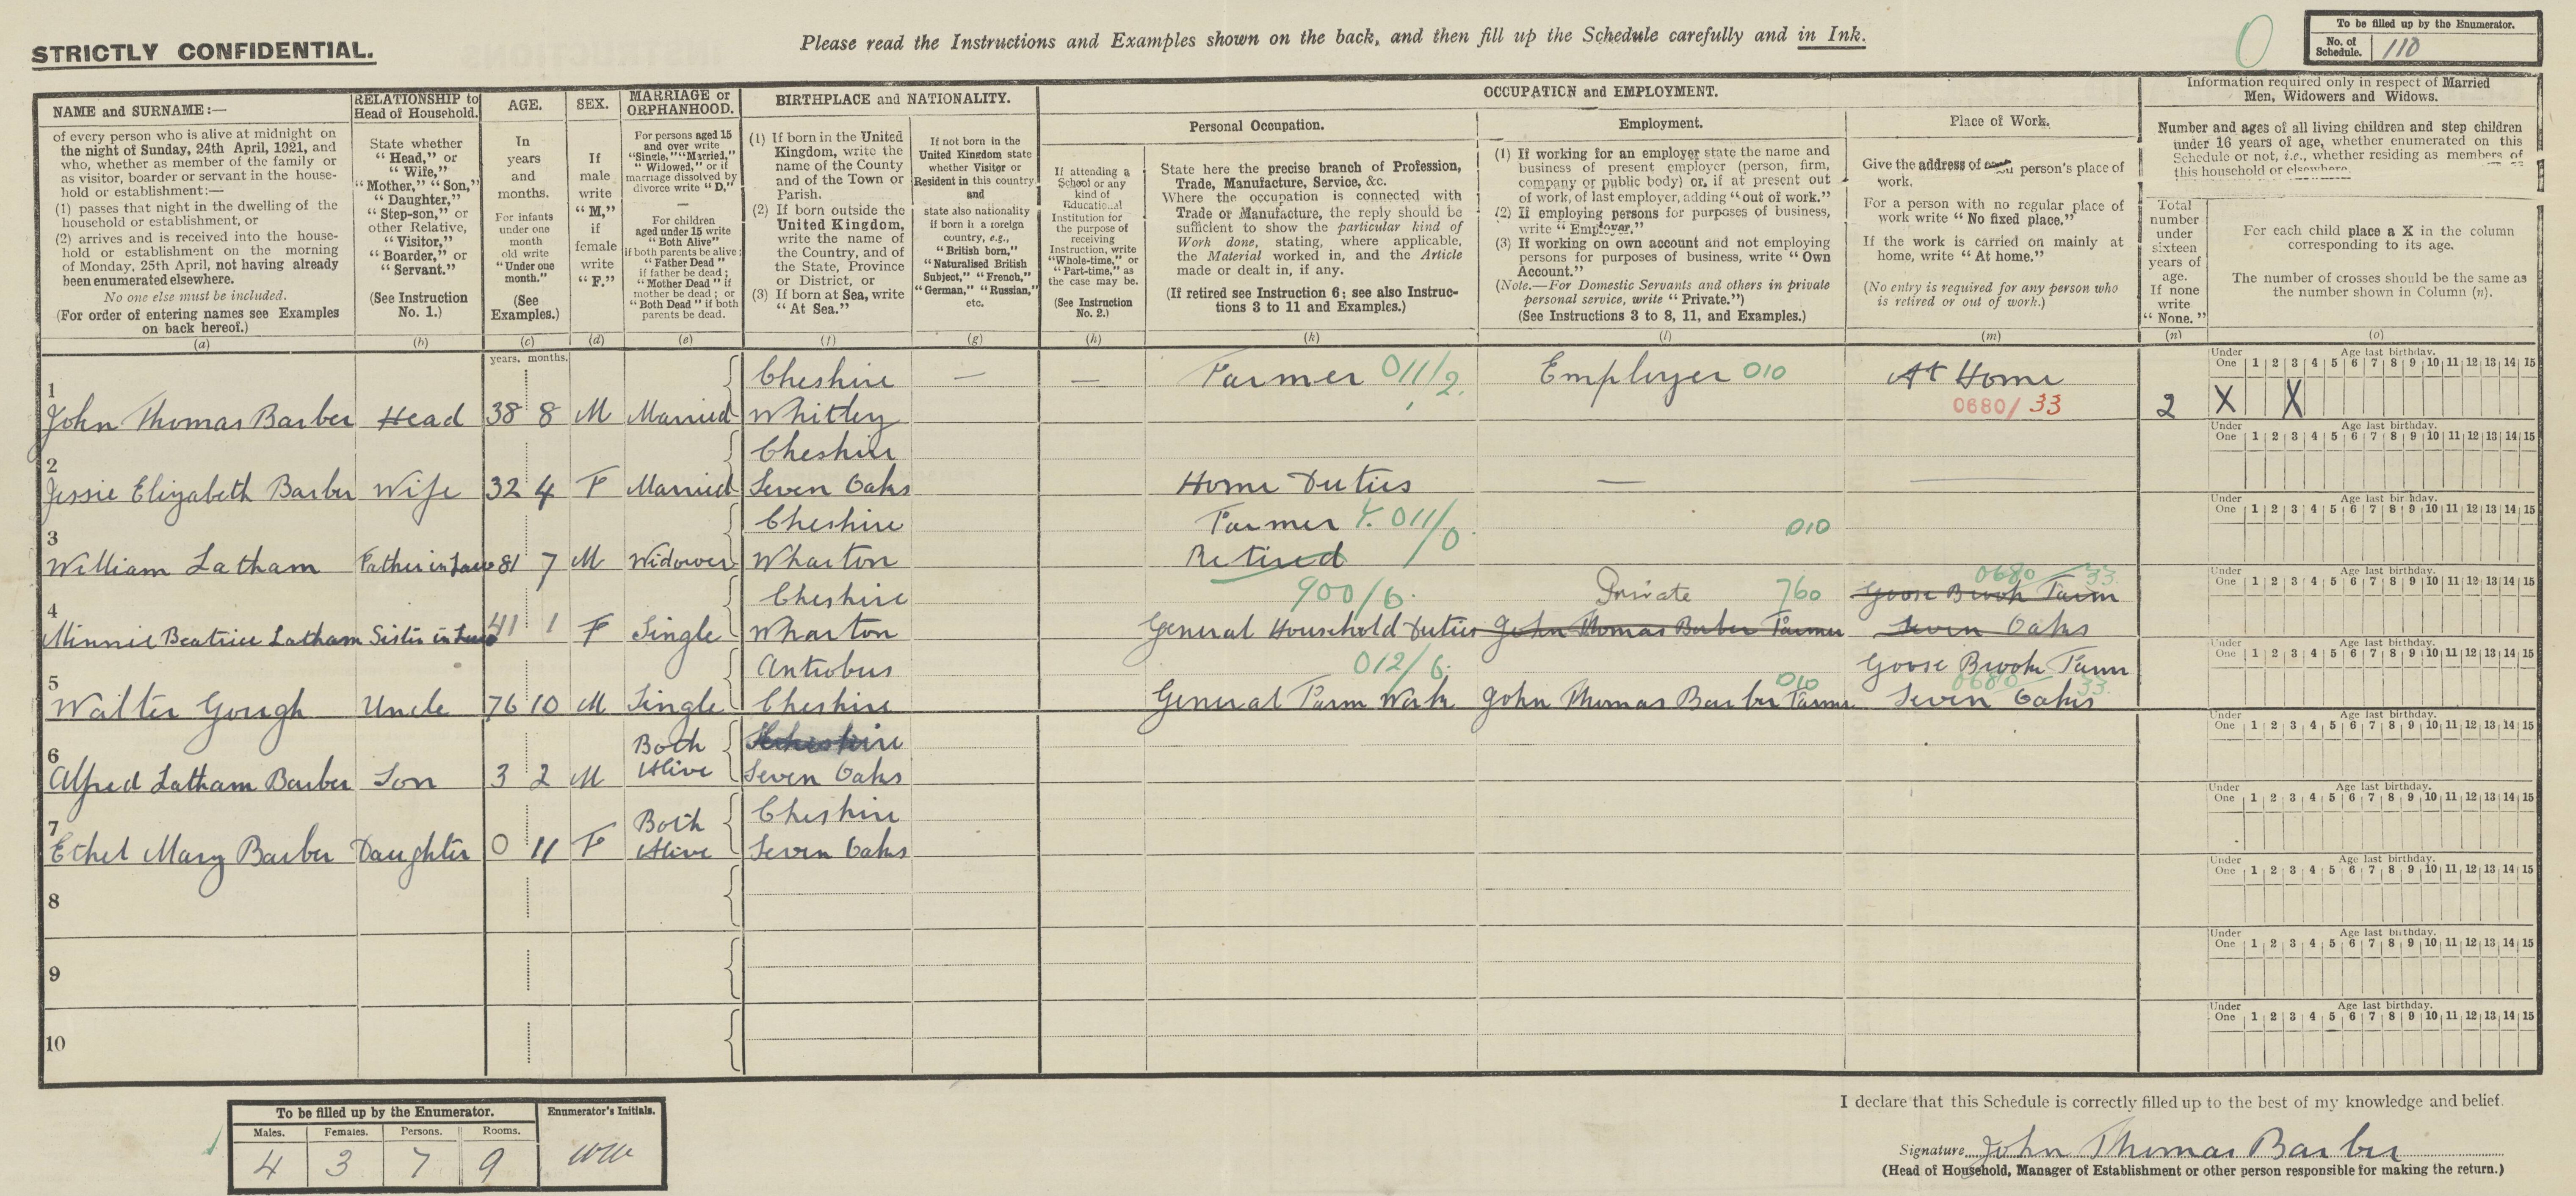 STRICTLY CONFIDENTIAL.
Please read the Instructions and Examples shown on the back, and then fill up the Schedule carefully and in Ink.
0
To be filled up by the Enumerator.
No. of Schedule. 110
NAME and SURNAME:—
of every person who is alive at midnight on
the night of Sunday, 24th April, 1921, and
who, whether as member of the family or
as visitor, boarder or servant in the house-
hold or establishment:—
(1) passes that night in the dwelling of the
household or establishment, or
(2) arrives and is received into the house-
hold or establishment on the morning
of Monday, 25th April, not having already
been enumerated elsewhere.
No one else must be included.
(For order of entering names see Examples
on back hereof.)
(a)
RELATIONSHIP to
Head of Household.
State whether
"Head," or
"Wife,"
"Mother," "Son,"
"Daughter,"
"Step-son," or
other Relative,
"Visitor,"
"Boarder," or
"Servant."
(See Instruction
No. 1.)
(b)
AGE.
In
years
and
months.
For infants
under one
month
old write
"Under one
month."
(See
Examples.)
(c)
SEX.
If
male
write
"M,"
if
female
write
"F."
(d)
MARRIAGE or
ORPHANHOOD.
For persons aged 15
and over write
"Single," "Married,"
"Widowed," or if
marriage dissolved by
divorce write "D."
—
For children
aged under 15 write
"Both Alive"
if both parents be alive;
"Father Dead"
if father be dead;
"Mother Dead" if
mother be dead; or
"Both Dead" if both
parents be dead.
(e)
BIRTHPLACE and NATIONALITY.
(1) If born in the United
Kingdom, write the
name of the County
and of the Town or
Parish.
(2) If born outside the
United Kingdom,
write the name of
the Country, and of
the State, Province
or District, or
(3) If born at Sea, write
"At Sea."
(f)
If not born in the
United Kingdom state
whether Visitor or
Resident in this country
and
state also nationality
if born in a foreign
country, e.g.,
"British born,"
"Naturalised British
Subject," "French,"
"German," "Russian,"
etc.
(g)
OCCUPATION and EMPLOYMENT.
If attending a
School or any
kind of
Educational
Institution for
the purpose of
receiving
Instruction, write
"Whole-time," or
"Part-time," as
the case may be.
(See Instruction
No. 2.)
(h)
Personal Occupation.
State here the precise branch of Profession,
Trade, Manufacture, Service, &c.
Where the occupation is connected with
Trade or Manufacture, the reply should be
sufficient to show the particular kind of
Work done, stating, where applicable,
the Material worked in, and the Article
made or dealt in, if any.
(If retired see Instruction 6; see also Instruc-
tions 3 to 11 and Examples.)
(k)
Employment.
(1) If working for an employer state the name and
business of present employer (person, firm,
company or public body) or, if at present out
of work, of last employer, adding "out of work."
(2) If employing persons for purposes of business,
write "Employer."
(3) If working on own account and not employing
persons for purposes of business, write "Own
Account."
(Note.—For Domestic Servants and others in private
personal service, write "Private.")
(See Instructions 3 to 8, 11, and Examples.)
(l)
Place of Work.
Give the address of each person's place of
work.
For a person with no regular place of
work write "No fixed place."
If the work is carried on mainly at
home, write "At home."
(No entry is required for any person who
is retired or out of work.)
(m)
Information required only in respect of Married
Men, Widowers and Widows.
Number and ages of all living children and step children
under 16 years of age, whether enumerated on this
Schedule or not, i.e., whether residing as members of
this household or elsewhere.
Total
number
under
sixteen
years of
age.
If none
write
"None."
(n)
For each child place a X in the column
corresponding to its age.
The number of crosses should be the same as
the number shown in Column (n).
(o)
years. months.
Under One Age last birthday. 1 2 3 4 5 6 7 8 9 10 11 12 13 14 15
1 John Thomas Barber Head 38 8 M Married Cheshire Whitley — — Farmer 011/2. Employer 010 At Home 0680/33 2 X X
Under One Age last birthday. 1 2 3 4 5 6 7 8 9 10 11 12 13 14 15
2 Jessie Elizabeth Barber Wife 32 4 F Married Cheshire Seven Oaks Home Duties — —
Under One Age last birthday. 1 2 3 4 5 6 7 8 9 10 11 12 13 14 15
3 William Latham Father in Law 81 7 M Widower Cheshire Wharton Farmer Y. 011/0 Retired 010
Under One Age last birthday. 1 2 3 4 5 6 7 8 9 10 11 12 13 14 15
4 Minnie Beatrice Latham Sister in Law 41 1 F Single Cheshire Wharton 900/6. General Household Duties Private 760 John Thomas Barber Farmer 0680 33 Goose Brook Farm Seven Oaks
Under One Age last birthday. 1 2 3 4 5 6 7 8 9 10 11 12 13 14 15
5 Walter Gough Uncle 76 10 M Single Antrobus Cheshire 012/6. General Farm Work 010 John Thomas Barber Farmer Goose Brook Farm 0680 33 Seven Oaks
Under One Age last birthday. 1 2 3 4 5 6 7 8 9 10 11 12 13 14 15
6 Alfred Latham Barber Son 3 2 M Both Alive Cheshire Seven Oaks
Under One Age last birthday. 1 2 3 4 5 6 7 8 9 10 11 12 13 14 15
7 Ethel Mary Barber Daughter 0 11 F Both Alive Cheshire Seven Oaks
Under One Age last birthday. 1 2 3 4 5 6 7 8 9 10 11 12 13 14 15
8
Under One Age last birthday. 1 2 3 4 5 6 7 8 9 10 11 12 13 14 15
9
Under One Age last birthday. 1 2 3 4 5 6 7 8 9 10 11 12 13 14 15
10
To be filled up by the Enumerator.
Males. Females. Persons. Rooms.
4 3 7 9
Enumerator's Initials.
I declare that this Schedule is correctly filled up to the best of my knowledge and belief.
Signature John Thomas Barber
(Head of Household, Manager of Establishment or other person responsible for making the return.)